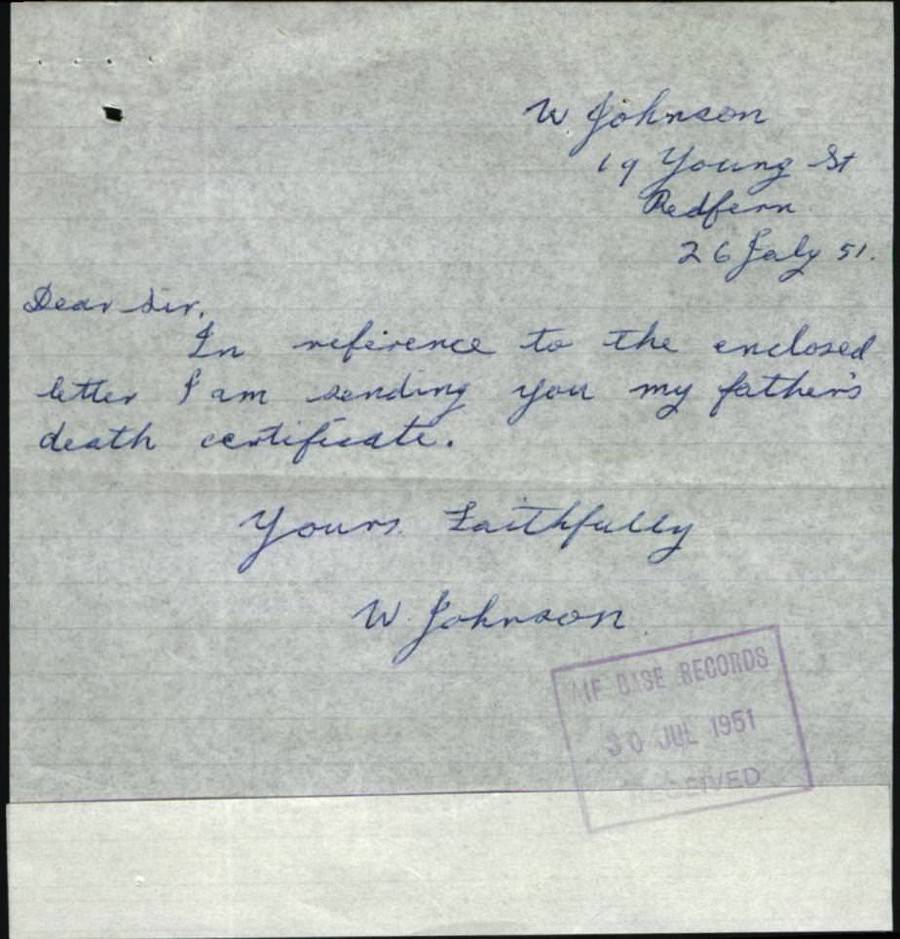 W Johnson
19 Young St
Redfern
26 July 51.
Dear Sir,
In reference to the enclosed
letter I am sending you my father's
death certificate.
Yours Faithfully
W. Johnson
AIF BASE RECORDS
30 JUL 1951
RECEIVED